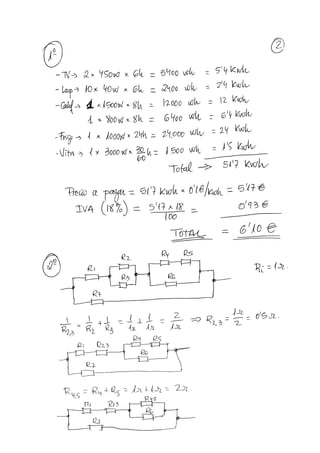 2
1º
- TV → 2 × 450w × 6h = 5400 wh = 5'4 Kwh
- Lamp → 10 × 40w × 6h = 2400 wh = 2'4 Kwh
- Calef → 1 × 1500w × 8h = 12000 wh = 12 Kwh
1 × 800w × 8h = 6400 wh = 6'4 Kwh
- Frigo → 1 × 1000w × 24h = 24.000 wh = 24 Kwh
- Vitro → 1 × 3000w × 30/60 h = 1500 wh = 1'5 Kwh
Total → 51'7 Kwh
Precio a pagar = 51'7 Kwh × 0'1€/Kwh = 5'17€
IVA (18%) = 5'17 × 18 / 100 = 0'93€
TOTAL = 6'10 €
2º
R1 R2 R3 R4 R5 R6 R7
Ri = 1Ω
1/R2,3 = 1/R2 + 1/R3 = 1/1Ω + 1/1Ω = 2/1Ω ⇒ R2,3 = 1Ω/2 = 0'5Ω.
R1 R23 R4 R5
R6
R7
R4,5 = R4 + R5 = 1Ω + 1Ω = 2Ω.
R1 R23 R45
R6
R7